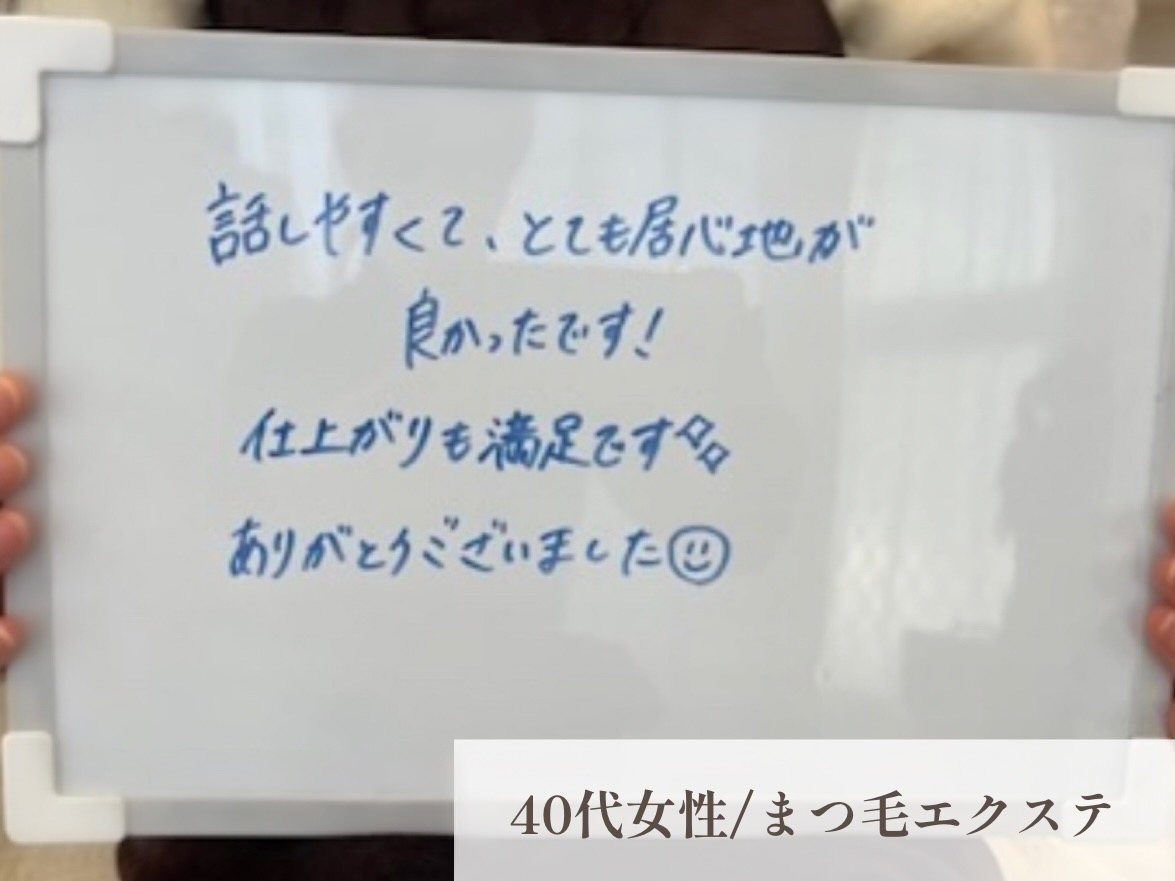 話しやすくて、とても居心地が
良かったです!
仕上がりも満足です
ありがとうございました
40代女性/まつ毛エクステ